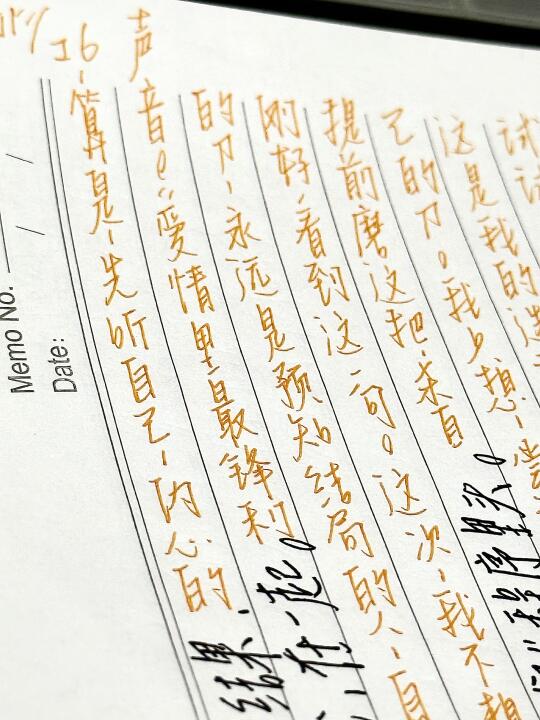 Memo No.
Date:
26、算是、先听自己、内心的
声音。“爱情里最锋利
的刀、永远是预知结局的人、自
刚好、看到这一句。这次、我不想
提前磨这把、来自
己的刀。我只想、尝
这是我的选
试试
结果、
在一起。
程序里头。